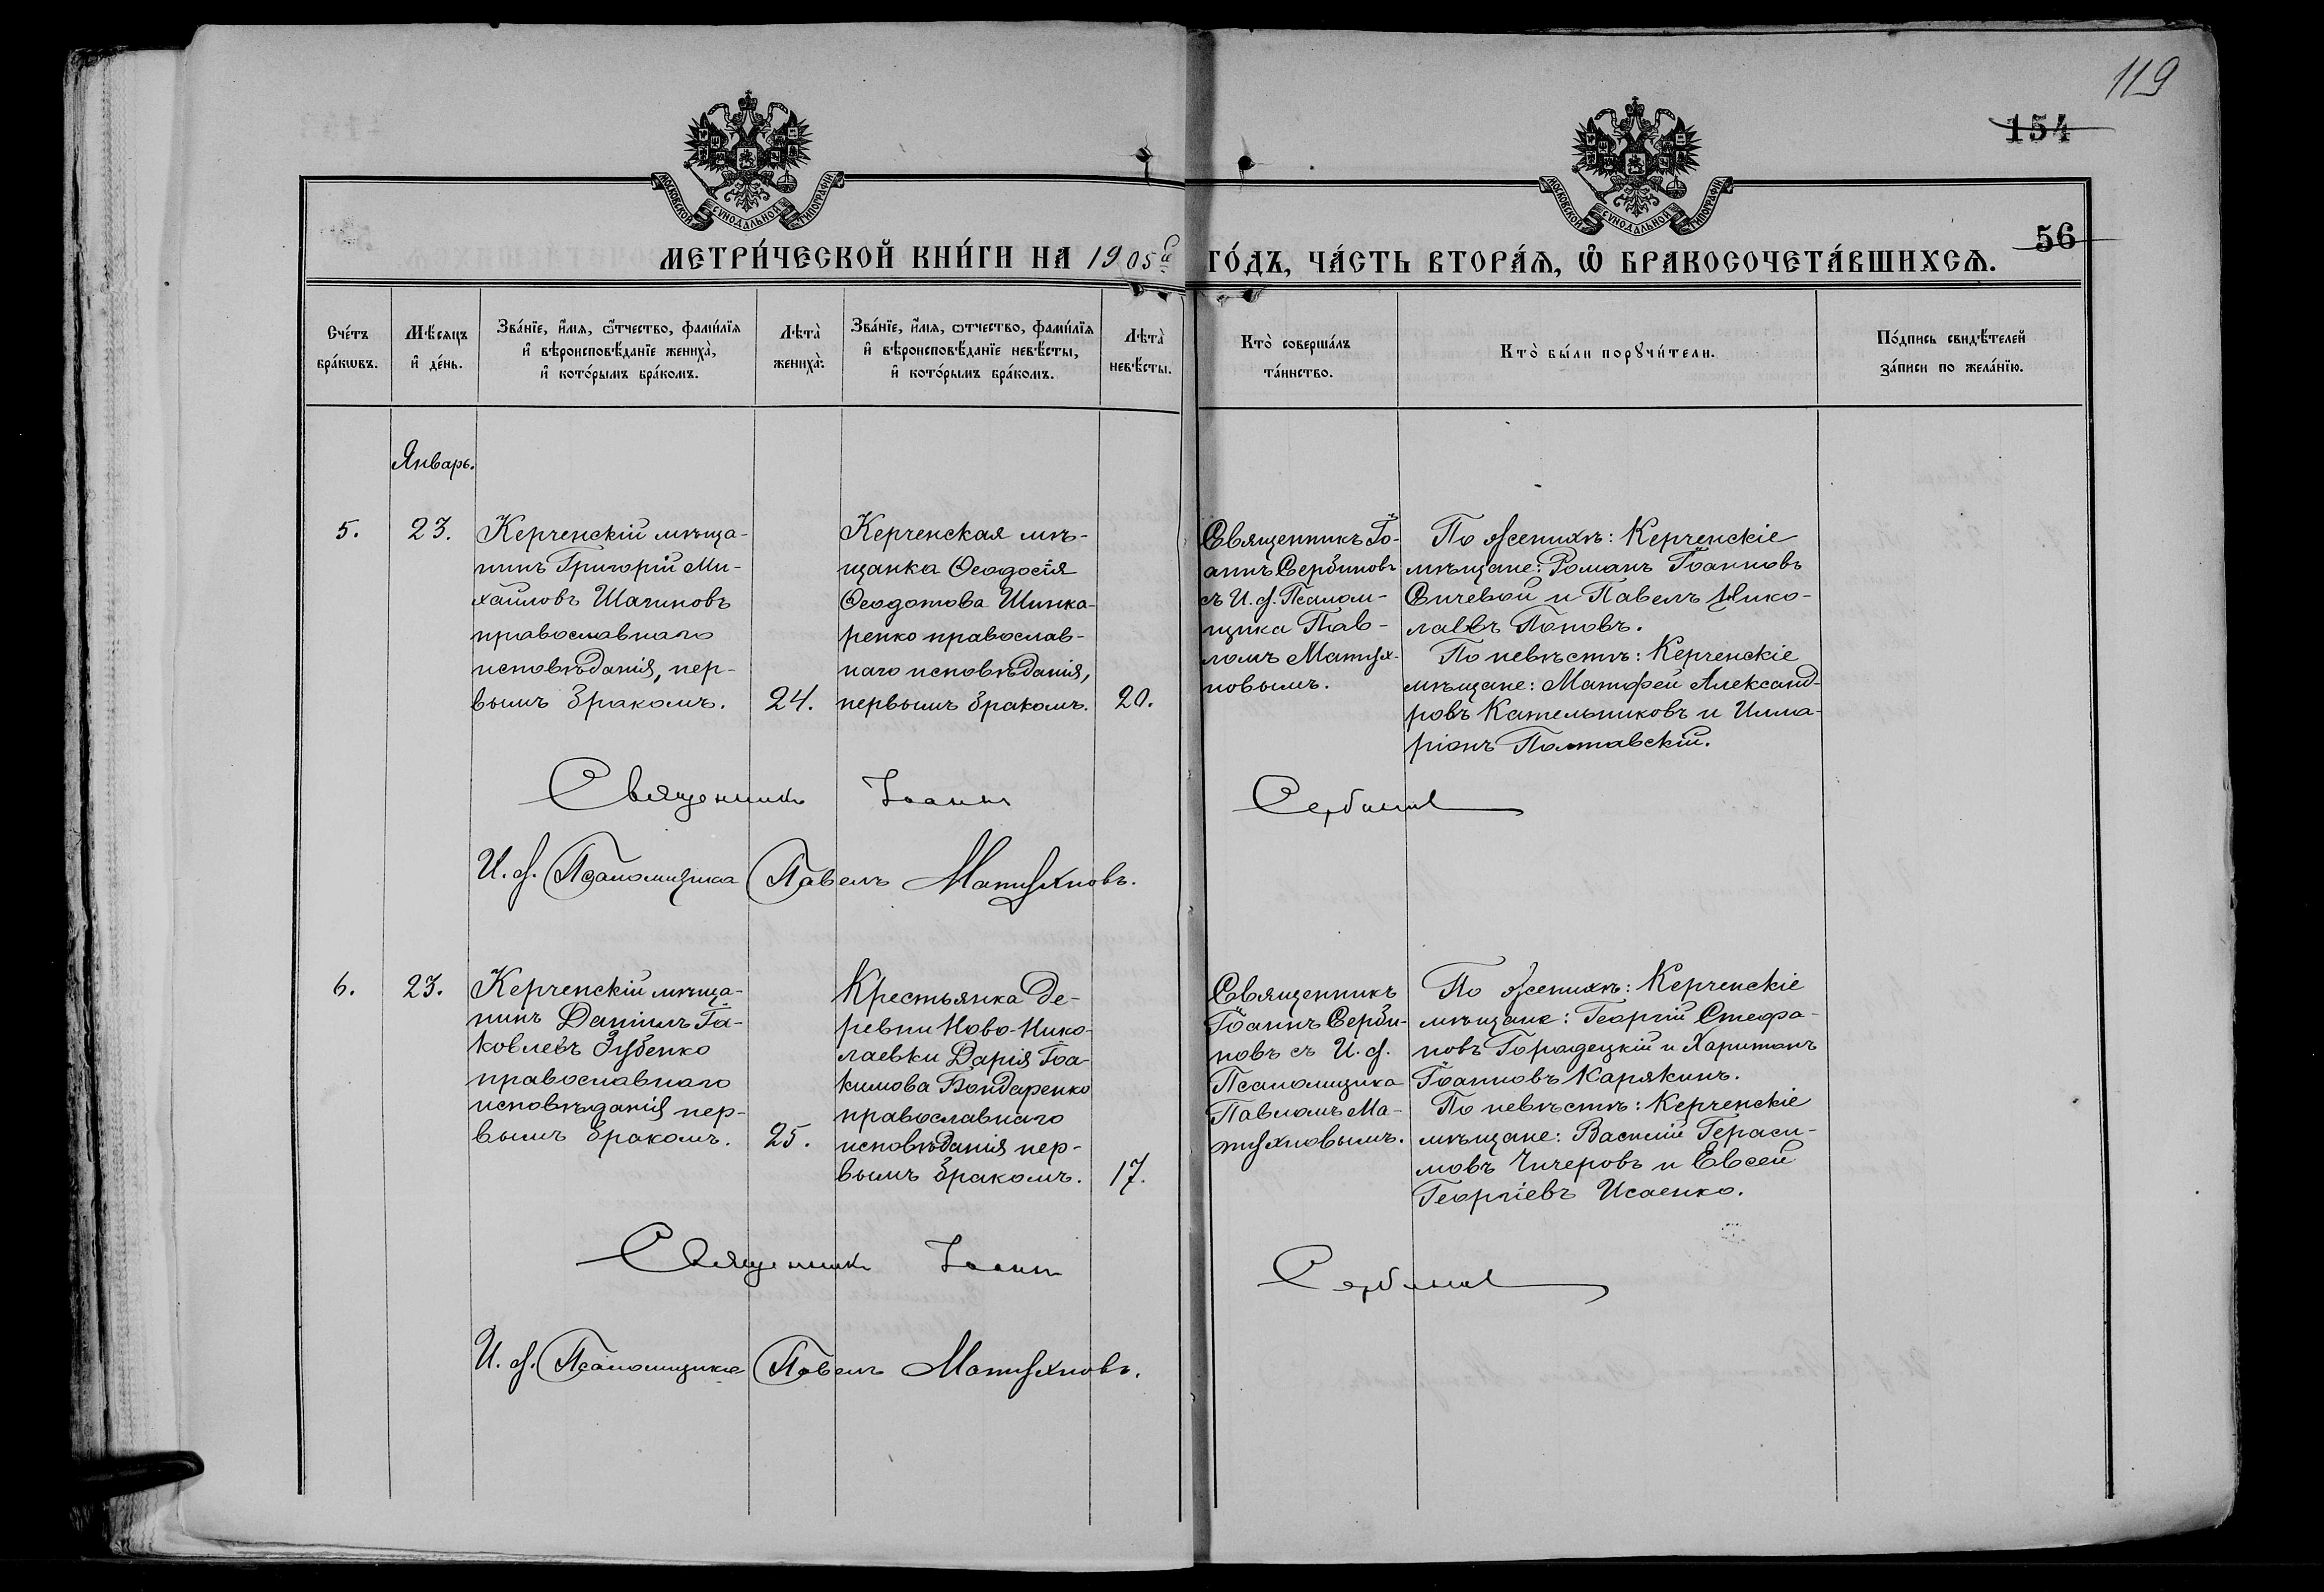 119
154
56
МОСКОВСКОЙ СѴНОДАЛЬНОЙ ТИПОГРАФІИ
МОСКОВСКОЙ СѴНОДАЛЬНОЙ ТИПОГРАФІИ
МЕТРИ́ЧЕСКОЙ КНИ́ГИ НА 1905й ГО́ДЪ, ЧА́СТЬ ВТОРА́Ѧ, Ѡ҆ БРАКОСОЧЕТА́ВШИХСѦ.
Сче́тъ
бра́кѡвъ.
Мѣ́сяцъ
и҆ де́нь.
Зва́нїе, и҆́мѧ, ѻ҆́тчество, фами́лїѧ
и҆ вѣроисповѣ́данїе жениха̀,
и҆ кото́рымъ бра́комъ.
Лѣта̀
жениха̀.
Зва́нїе, и҆́мѧ, ѻтчество, фами́лїѧ
и҆ вѣроисповѣ́данїе невѣ́сты,
и҆ кото́рымъ бра́комъ.
Лѣта̀
невѣ́сты.
Кто̀ соверша́лъ
та́инство.
Кто̀ бы́ли порꙋчи́тели.
По́дпись свидѣ́телей
за́писи по жела́нїю.
Январь.
5.
23.
Керченскій мѣща-
нинъ Григорій Ми-
хаиловъ Шагиновъ
православнаго
исповѣданія, пер-
вымъ бракомъ.
24.
Керченская мѣ-
щанка Ѳеодосія
Ѳеодотова Шинка-
ренко православ-
наго исповѣданія,
первымъ бракомъ.
20.
Священникъ Іо-
аннъ Сербиновъ
съ И. д. Псалом-
щика Пав-
ломъ Матух-
новымъ.
По женихѣ: Керченскіе
мѣщане: Романъ Іоанновъ
Сичевой и Павелъ Нико-
лаевъ Поповъ.
По невѣстѣ: Керченскіе
мѣщане: Матфей Александ-
ровъ Кательниковъ и Илла-
ріонъ Полтавскій.
Священникъ Іоаннъ Сербинов
И. д. Псаломщика Павелъ Матухновъ.
6.
23.
Керченскій мѣща-
нинъ Даніилъ Іа-
ковлевъ Зубенко
православнаго
исповѣданія пер-
вымъ бракомъ.
25.
Крестьянка де-
ревни Ново-Нико-
лаевки Дарія Іоа-
кимова Бондаренко
православнаго
исповѣданія пер-
вымъ бракомъ.
17.
Священникъ
Іоаннъ Серби-
новъ съ И. д.
Псаломщика
Павломъ Ма-
тухновымъ.
По женихѣ: Керченскіе
мѣщане: Георгій Стефа-
новъ Городецкій и Харитонъ
Іоанновъ Карякинъ.
По невѣстѣ: Керченскіе
мѣщане: Василій Гераси-
мовъ Чичеровъ и Евсей
Георгіевъ Исаенко.
Священникъ Іоаннъ Сербинов
И. д. Псаломщика Павелъ Матухновъ.